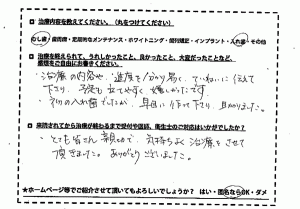 □ 治療内容を教えてください。（丸をつけてください）
むし歯・歯周病・定期的なメンテナンス・ホワイトニング・歯列矯正・インプラント・入れ歯・その他
□ 治療を終えられて、うれしかったこと、良かったこと、大変だったことなど、
感想をご自由にお書きください。
・治療の内容や、進度を分かり易く、ていねいに伝えて
下さり、予定も立てやすく嬉しかったです
・初めての入れ歯でしたが、早目に作って下さり、助かりました。
□ 来院されてから治療が終わるまで受付や医師、衛生士のご対応はいかがでしたか？
・とても皆さん親切で、気持ちよく治療をさせて
頂きました。ありがとうございました。
★ホームページ等でご紹介させて頂いてもよろしいでしょうか？ はい・匿名ならOK・ダメ